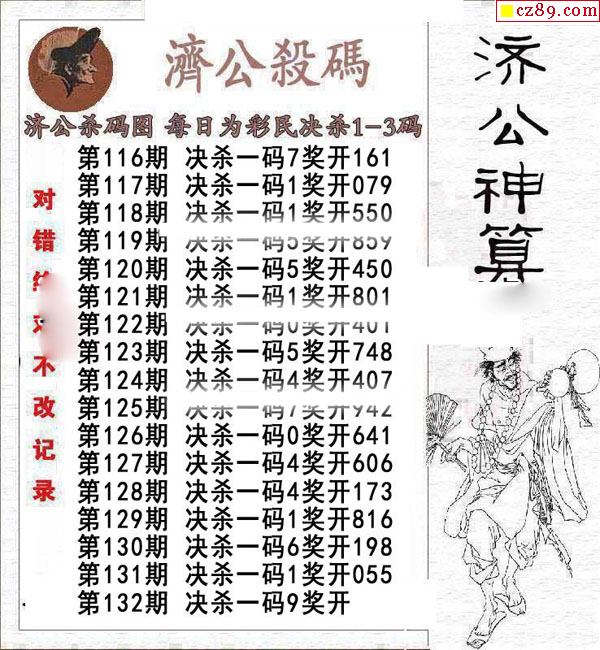 cz89.com
濟公殺碼
济公杀码图 每日为彩民决杀1-3码
第116期 决杀一码7奖开161
第117期 决杀一码1奖开079
第118期 决杀一码1奖开550
第119期 决杀一码5奖开859
第120期 决杀一码5奖开450
第121期 决杀一码1奖开801
第122期 决杀一码0奖开401
第123期 决杀一码5奖开748
第124期 决杀一码4奖开407
第125期 决杀一码7奖开942
第126期 决杀一码0奖开641
第127期 决杀一码4奖开606
第128期 决杀一码4奖开173
第129期 决杀一码1奖开816
第130期 决杀一码6奖开198
第131期 决杀一码1奖开055
第132期 决杀一码9奖开
对错不改记录
济公神算